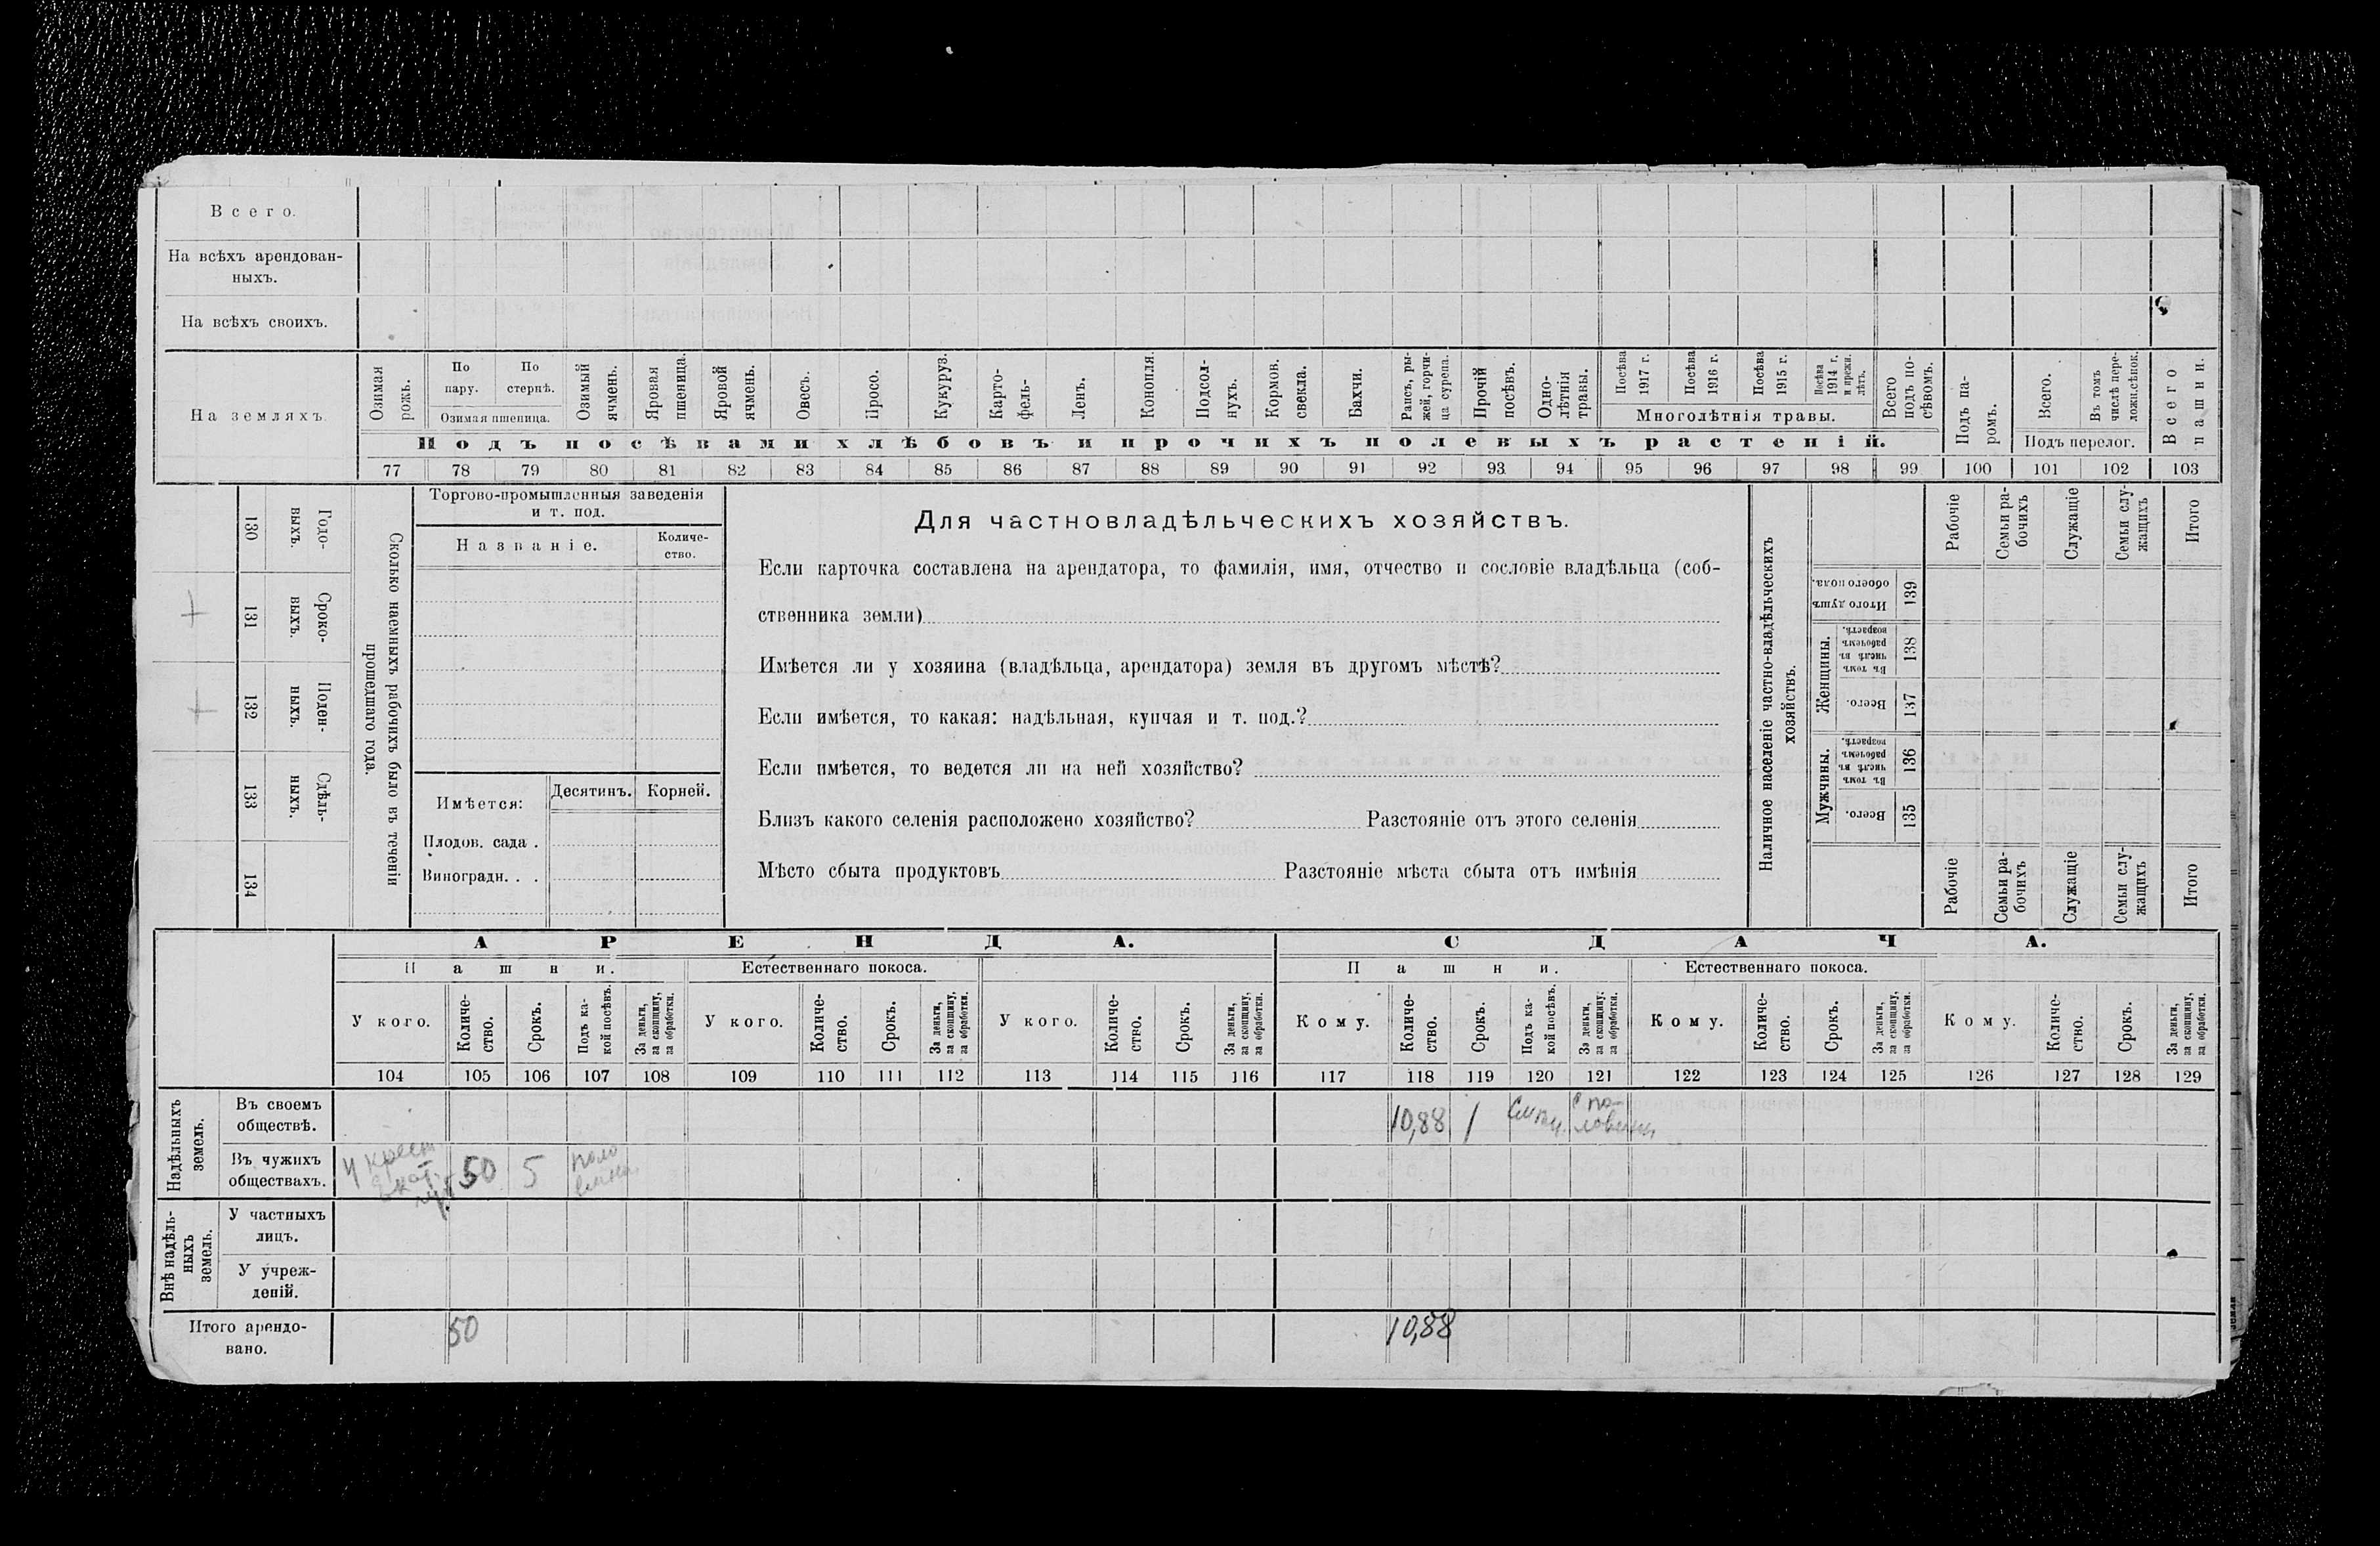 Всего.
На всѣхъ арендован-
ныхъ.
На всѣхъ своихъ.
На земляхъ.
Озимая
рожь.
По
пару.
По
стернѣ.
Озимая пшеница.
Озимый
ячмень.
Яровая
пшеница.
Яровой
ячмень.
Овесъ.
Просо.
Кукуруз.
Карто-
фель-
Ленъ.
Конопля.
Подсол-
нухъ.
Кормов.
свекла.
Бахчи.
Рапсъ, ры-
жей, горчи-
ца сурепа.
Прочій
посѣвъ.
Одно-
лѣтнія
травы.
Посѣва
1917 г.
Посѣва
1916 г.
Посѣва
1915 г.
Посѣва
1914 г.
и прежн.
лѣтъ.
Многолѣтнія травы.
Всего
подъ по-
сѣвомъ.
Подъ па-
ромъ.
Всего.
Въ томъ
числѣ пере-
ложн.сѣнок.
Подъ перелог.
Всего
пашни.
Подъ посѣвами хлѣбовъ и прочихъ полевыхъ растеній.
77 78 79 80 81 82 83 84 85 86 87 88 89 90 91 92 93 94 95 96 97 98 99 100 101 102 103
Годо-
выхъ.
130
Сроко-
выхъ.
131
Поден-
ныхъ.
132
Сдѣль-
ныхъ.
133
134
Сколько наемныхъ рабочихъ было въ теченіи
прошедшаго года.
Торгово-промышленныя заведенія
и т. под.
Названіе.
Количе-
ство.
Имѣется:
Десятинъ.
Корней.
Плодов. сада .
Виноградн. . .
Для частновладѣльческихъ хозяйствъ.
Если карточка составлена на арендатора, то фамилія, имя, отчество и сословіе владѣльца (соб-
ственника земли)
Имѣется ли у хозяина (владѣльца, арендатора) земля въ другомъ мѣстѣ?
Если имѣется, то какая: надѣльная, купчая и т. под.?
Если имѣется, то ведется ли на ней хозяйство?
Близъ какого селенія расположено хозяйство? Разстояніе отъ этого селенія
Мѣсто сбыта продуктовъ Разстояніе мѣста сбыта отъ имѣнія
Наличное населеніе частно-владѣльческихъ
хозяйствъ.
Рабочіе
Семьи ра-
бочихъ
Служащіе
Семьи слу-
жащихъ
Итого
Итого душъ
обоего пола.
139
Женщины.
Въ томъ
числѣ въ
рабочемъ
возрастѣ.
138
Всего.
137
Мужчины.
Въ томъ
числѣ въ
рабочемъ
возрастѣ.
136
Всего.
135
Рабочіе
Семьи ра-
бочихъ
Служащіе
Семьи слу-
жащихъ
Итого
АРЕНДА.
СДАЧА.
Пашни.
Естественнаго покоса.
Пашни.
Естественнаго покоса.
У кого.
Количе-
ство.
Срокъ.
Подъ ка-
кой посѣвъ.
За деньги,
за скопщину,
за обработки.
У кого.
Количе-
ство.
Срокъ.
За деньги,
за скопщину,
за обработки.
У кого.
Количе-
ство.
Срокъ.
За деньги,
за скопщину,
за обработки.
Кому.
Количе-
ство.
Срокъ.
Подъ ка-
кой посѣвъ.
За деньги,
за скопщину,
за обработки.
Кому.
Количе-
ство.
Срокъ.
За деньги,
за скопщину,
за обработки.
Кому.
Количе-
ство.
Срокъ.
За деньги,
за скопщину,
за обработки.
104 105 106 107 108 109 110 111 112 113 114 115 116 117 118 119 120 121 122 123 124 125 126 127 128 129
Надѣльныхъ
земель.
Въ своемъ
обществѣ.
10,88 1
Въ чужихъ
обществахъ.
50 5
Внѣ надѣль-
ныхъ
земель.
У частныхъ
лицъ.
У учреж-
деній.
Итого арендо-
вано.
50 10,88